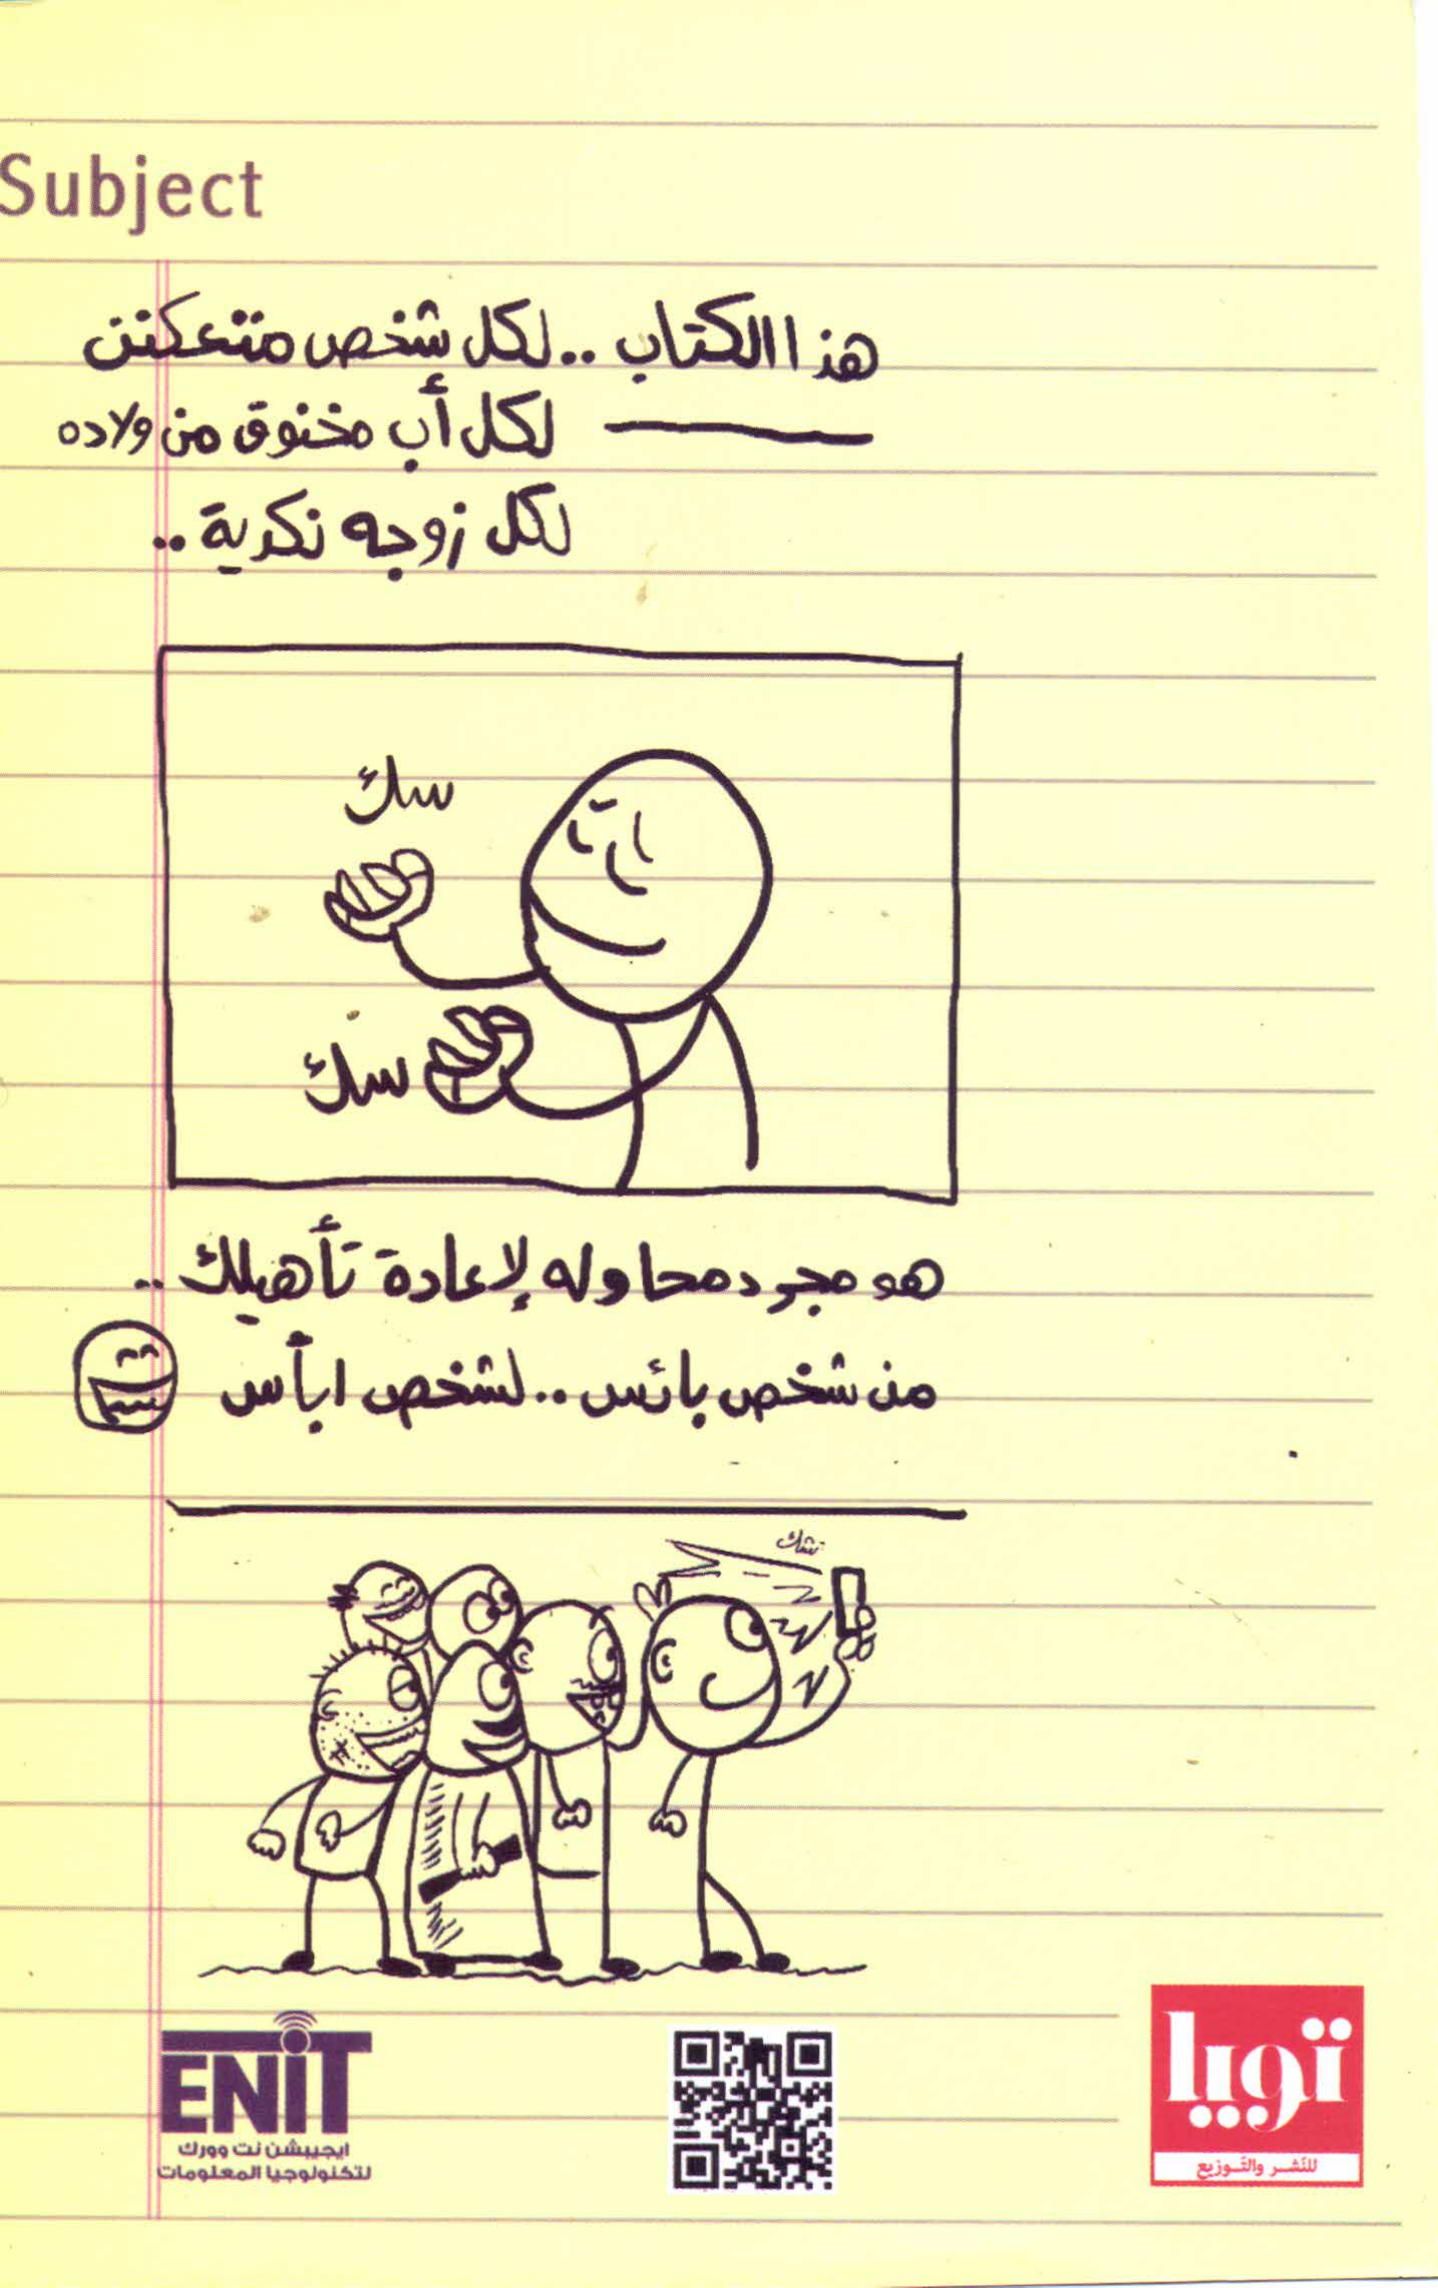 Subject
هذا الكتاب .. لكل شخص متعكنن
لكل أب مخنوق من ولاده
لكل زوجه نكدية ..
سك
سك
هو مجرد محاوله لإعادة تأهيلك ..
من شخص بائس .. لشخص ابأس
تشك
ENiT
ايجيبشن نت وورك
لتكنولوجيا المعلومات
تويا
للنشر والتوزيع